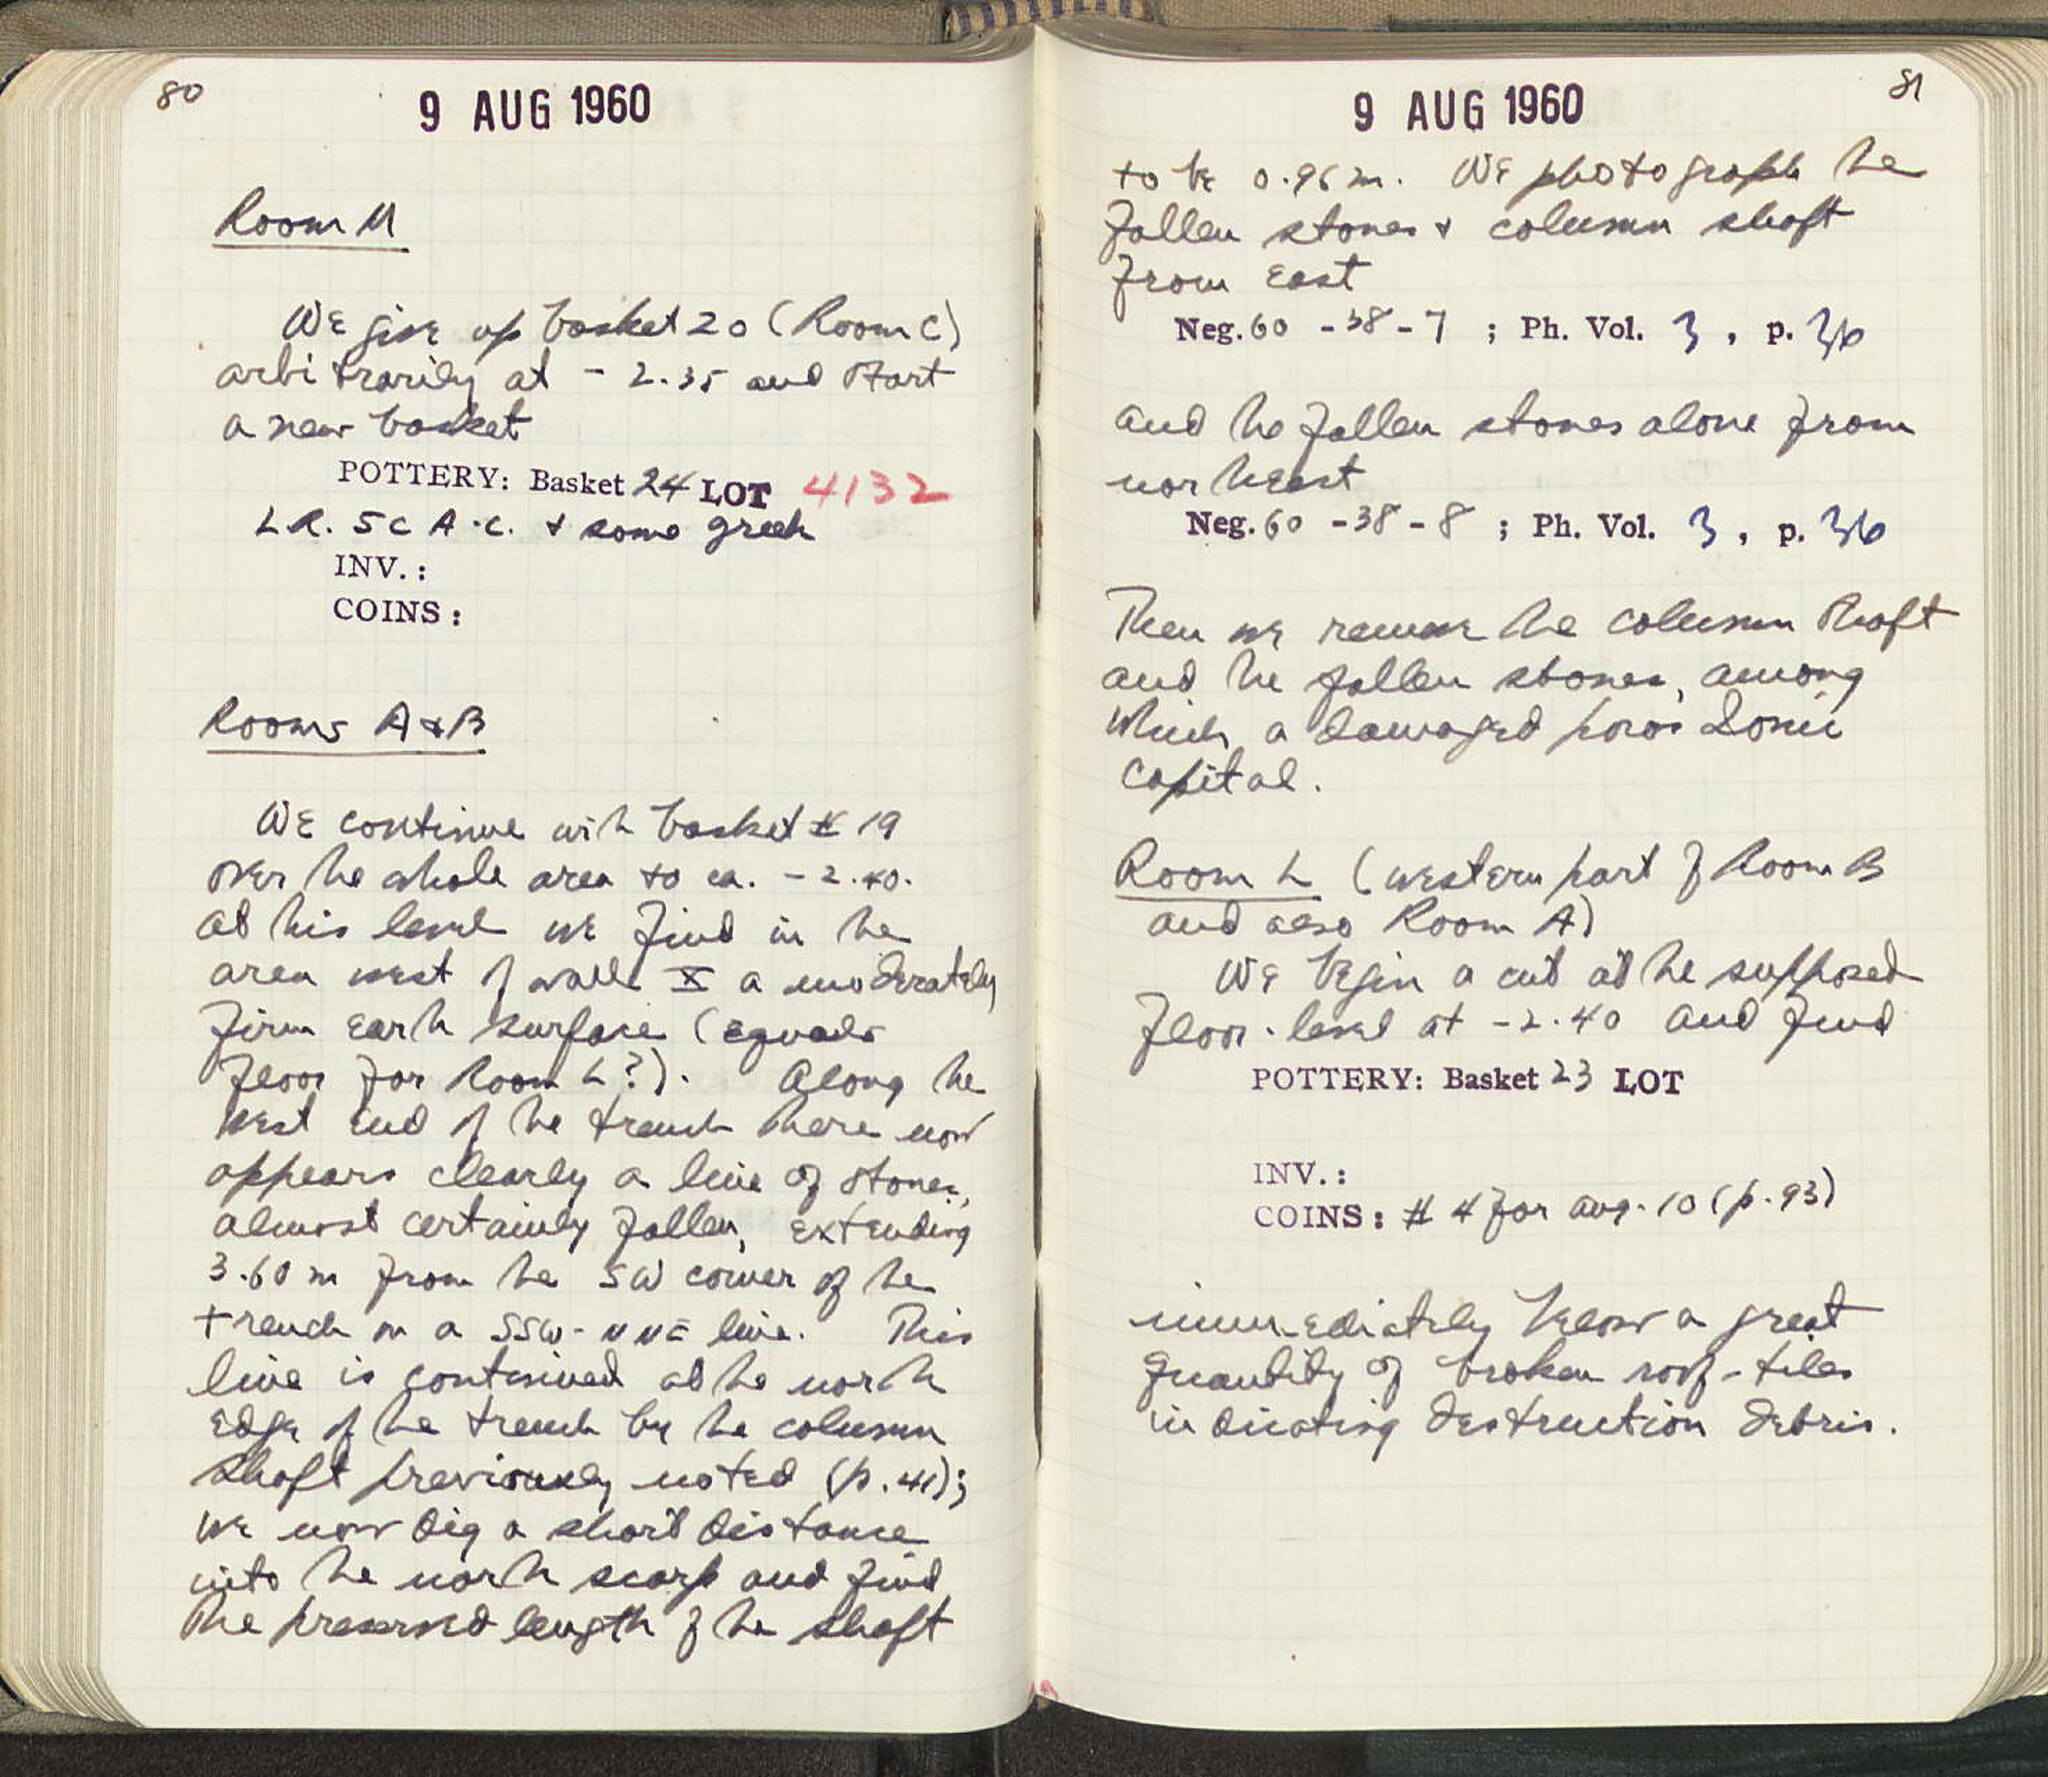 80
9 AUG 1960
Room M
We give up basket 20 (Room C)
arbitrarily at - 2.35 and start
a new basket
POTTERY: Basket 24 LOT 4132
LR. 5 C A.C. + some greek
INV.:
COINS:
Rooms A + B
We continue with basket # 19
over the whole area to ca. - 2.40.
At this level we find in the
area west of wall X a moderately
firm earth surface (equals
floor for Room L?). Along the
west end of the trench there now
appears clearly a line of stones,
almost certainly fallen, extending
3.60 m from the SW corner of the
trench on a SSW-NNE line. This
line is continued at the north
edge of the trench by the column
shaft previously noted (p. 41);
we now dig a short distance
into the north scarp and find
the preserved length of the shaft
81
9 AUG 1960
to be 0.96 m. We photograph the
fallen stones + column shaft
from east
Neg. 60 - 38 - 7 ; Ph. Vol. 3 , p. 36
and the fallen stones alone from
northeast
Neg. 60 - 38 - 8 ; Ph. Vol. 3 , p. 36
Then we remove the column shaft
and the fallen stones, among
which a damaged poros Ionic
capital.
Room L (western part of Room B
and also Room A)
We begin a cut at the supposed
floor-level at - 2.40 and find
POTTERY: Basket 23 LOT
INV.:
COINS: # 4 for Aug. 10 (p. 93)
immediately below a great
quantity of broken roof-tiles
indicating destruction debris.